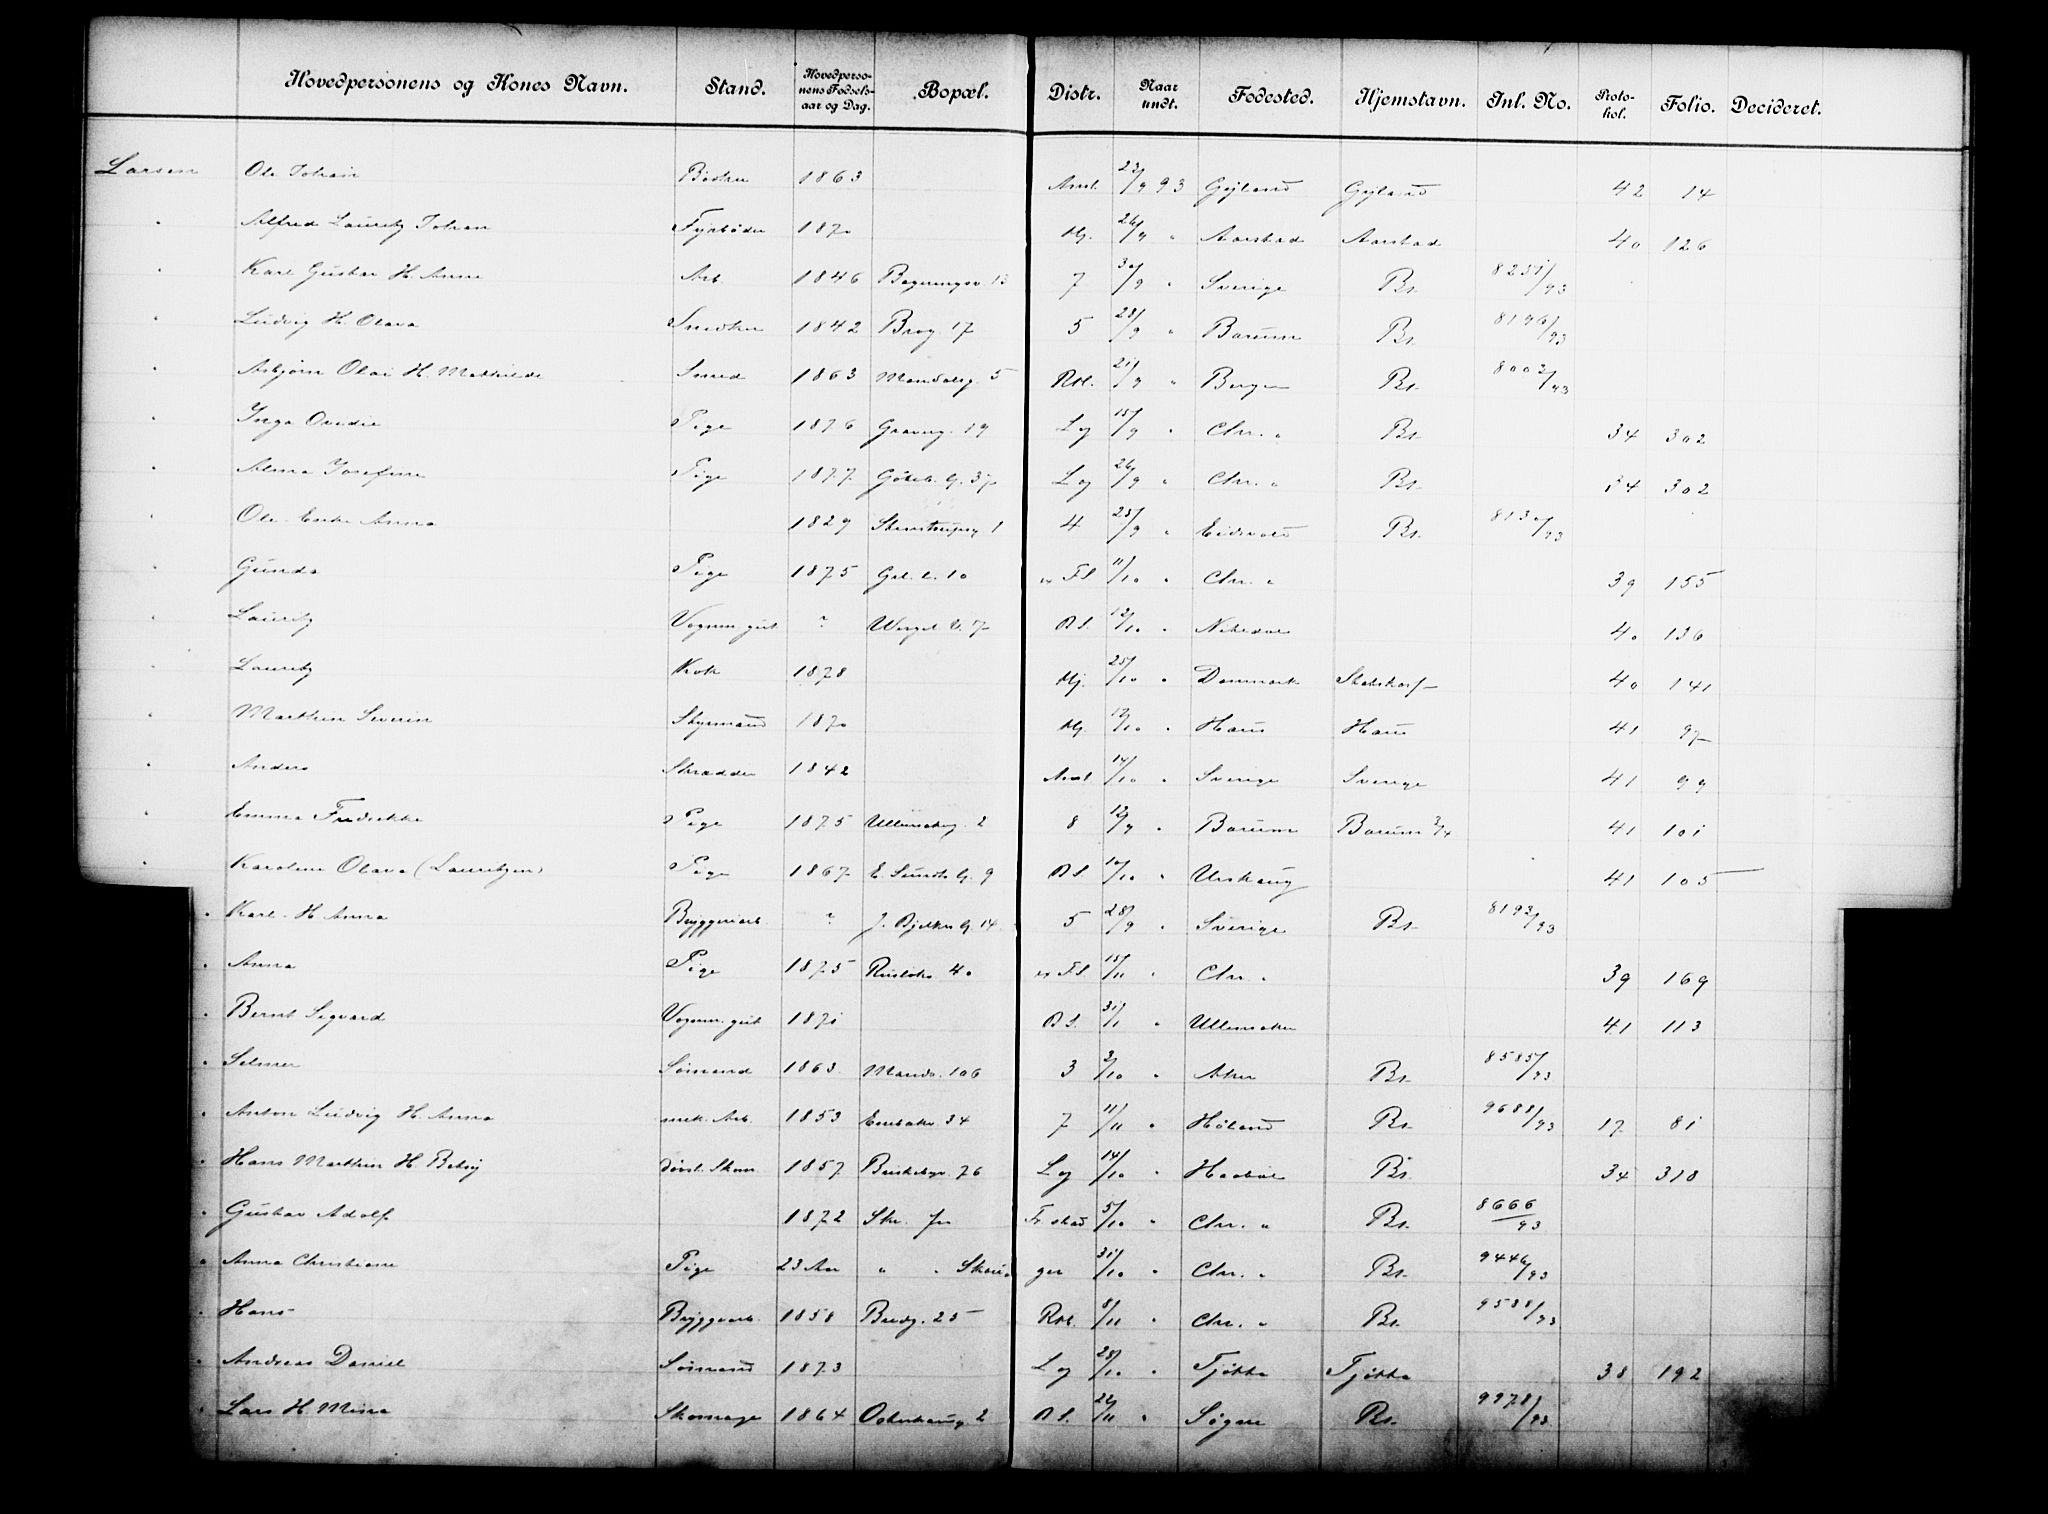 Hovedpersonens og Kones Navn. Stand. Hovedpersonens Fødselsaar og Dag. Bopæl. Distr. Naar undt. Fødested. Hjemstavn. Inl. No. Protokol. Folio. Decideret.
Larsen Ole Johan 1863 Amt. 23/9 93 Gyland Gyland 42 14
" Alfred Lauritz Johan Fyrbøder 1870 Hj. 26/9 " Aarstad Aarstad 40 126
" Karl Gustav H. Anna Arb. 1846 13 7 30/9 " Sverige Bs. 8231/93
" Ludvig H. Olava Snedker 1842 Brog. 17 5 28/9 " Bærum Bs. 8196/93
" Asbjørn Olai H. Mathilde Smed 1863 Mandalsg. 5 Rol. 21/9 " Bergen Bs. 8002/93
" Inga Ovidie Pige 1876 Grønng. 19 Lg 15/9 " Chr. " Bs. 34 302
" Alma Josefine Pige 1877 Göteb. G. 37 Lg 26/9 " Chr. " Bs. 34 302
" Ole Enke Anna 1829 Stenstrupsg. 1 4 25/9 " Eidsvold Bs. 8130/93
" Gunda Pige 1875 10 11/10 " Chr. " 39 155
" Lauritz Vognm. gut ? Wergel. V. 7 B S. 12/10 " Nitedal 40 136
" Lauritz Kok 1878 Hj. 25/10 " Danmark 40 141
" Marthin Severin Styrmand 1870 Hj. 12/10 " Haus Haus 41 97
" Anders Skrædder 1842 Amt. 14/10 " Sverige Sverige 41 99
" Emma Fredrikke Pige 1875 Ullensakerg. 2 8 12/9 " Bærum Bærum 41 101
" Karoline Olava (Lauritzen) Pige 1867 E. Sundts G. 9 B S. 10/10 " Urskaug 41 105
" Karl H. Anna Bryggeriarb. ? J. Bjelkes G. 14 5 28/9 " Sverige Bs. 8193/93
" Anna Pige 1875 Rusløkv. 40 15/11 " Chr. " 39 169
" Bernt Sigvard Vognm. gut 1871 B S. 31/1 " Ullensaker 41 113
" Selmer Sømand 1863 Maridv. 106 3 2/10 " Aker Bs. 8585/93
" Anton Ludvig H. Anna mek. Arb. 1853 Enebakv. 34 7 11/11 " Høland Bs. 9688/93 17 81
" Hans Marthin H. Betsy døvst. Skom. 1857 Briskebyv. 76 Lg 14/10 " Haabøl Bs. 34 318
" Gustav Adolf 1872 5/10 " Chr. " Bs. 8666/93
" Anna Christiane Pige 23 Aar " " 31/10 " Chr. " Bs. 9446/93
" Hans Bryggeriarb. 1858 Bredg. 25 Rol. 8/11 " Chr. " Bs. 9588/93
" Andreas Daniel Sømand 1873 Lg 28/10 " Tjøtta Tjøtta 38 192
" Lars H. Mina Skomager 1864 Osterhausg. 2 B S. 22/11 " Søgne Bs. 9978/93